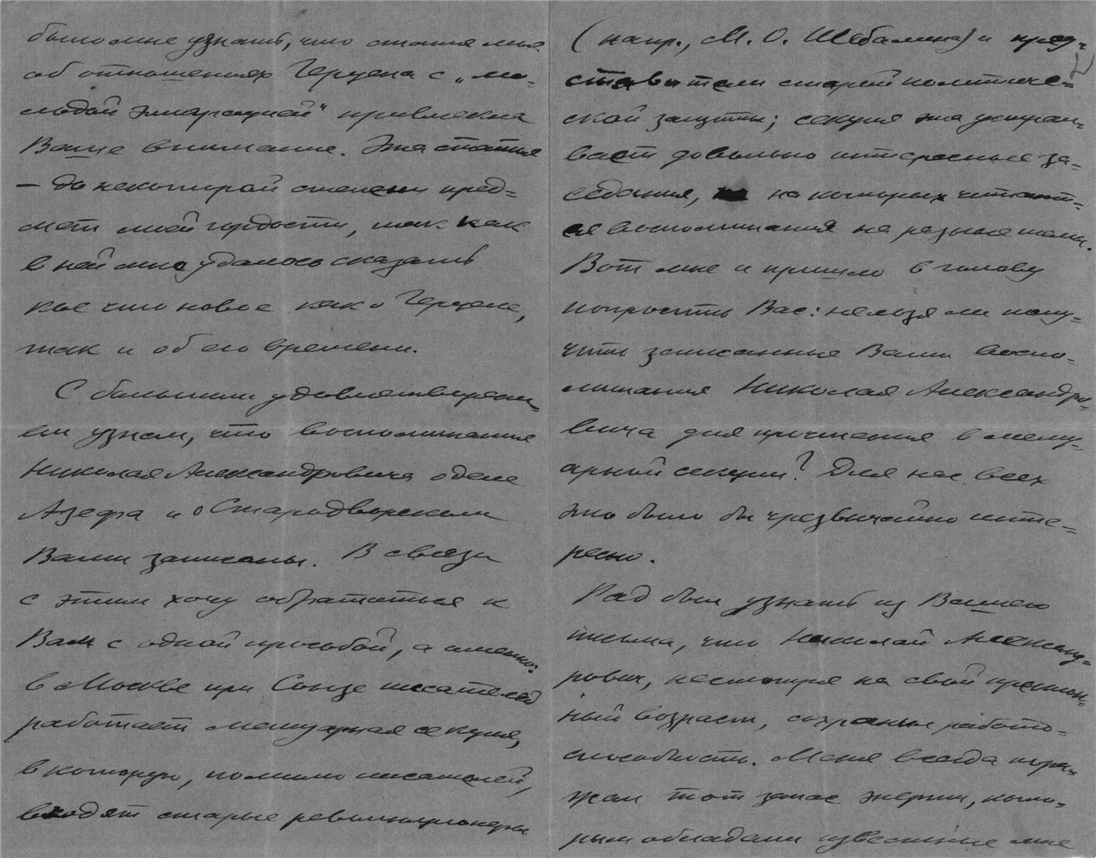 было мне узнать, что статья моя
об отношениях Герцена с „мо-
лодой эмиграцией" привлекла
Ваше внимание. Эта статья
— до некоторой степени пред-
мет моей гордости, так как
в ней мне удалось сказать
кое что новое как о Герцене,
так и об его времени.
С большим удовлетворени-
ем узнал, что воспоминания
Николая Александровича о деле
Азефа и о Стародворском
Вами записаны. В связи
с этим хочу обратиться к
Вам с одной просьбой, а именно:
в Москве при Союзе писателей
работает мемуарная секция,
в которую, помимо писателей,
входят старые революционеры
(напр., М. О. Шебалина) и пред-
ставители старой политиче-
ской защиты; секция эта устраи-
вает довольно интересные за-
седания, на которых читают-
ся воспоминания на разные темы.
Вот мне и пришло в голову
попросить Вас: нельзя ли полу-
чить записанные Вами воспо-
минания Николая Александро-
вича для прочтения в мему-
арной секции? Для нас всех
это было бы чрезвычайно инте-
ресно.
Рад был узнать из Вашего
письма, что Николай Александ-
рович, несмотря на свой преклон-
ный возраст, сохранил работо-
способность. Меня всегда пора-
жал тот запас энергии, кото-
рым обладали известные мне